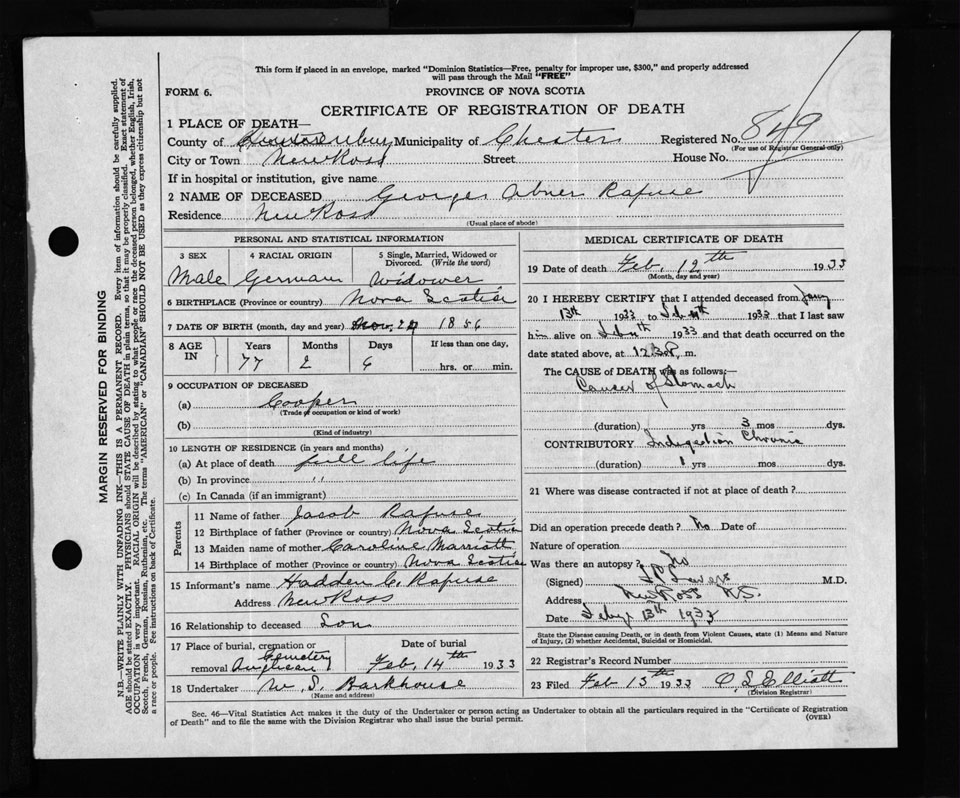 This form if placed in an envelope, marked "Dominion Statistics—Free, penalty for improper use, $300," and properly addressed
will pass through the Mail "FREE"
FORM 6. PROVINCE OF NOVA SCOTIA
CERTIFICATE OF REGISTRATION OF DEATH
1 PLACE OF DEATH—
County of Lunenburg Municipality of Chester Registered No. 849
(For use of Registrar General only)
City or Town New Ross Street House No.
If in hospital or institution, give name
2 NAME OF DECEASED George Abner Rafuse
Residence New Ross
(Usual place of abode)
PERSONAL AND STATISTICAL INFORMATION
3 SEX 4 RACIAL ORIGIN 5 Single, Married, Widowed or
Divorced. (Write the word)
Male German Widower
6 BIRTHPLACE (Province or country) Nova Scotia
7 DATE OF BIRTH (month, day and year) Nov. 1856
8 AGE IN Years Months Days If less than one day,
77 2 6 hrs. or min.
9 OCCUPATION OF DECEASED
(a) Cooper
(Trade or occupation or kind of work)
(b)
(Kind of industry)
10 LENGTH OF RESIDENCE (in years and months)
(a) At place of death full life
(b) In province " 
(c) In Canada (if an immigrant)
Parents
11 Name of father Jacob Rafuse
12 Birthplace of father (Province or country) Nova Scotia
13 Maiden name of mother Caroline Marriott
14 Birthplace of mother (Province or country) Nova Scotia
15 Informant's name Hadden C. Rafuse
Address New Ross
16 Relationship to deceased Son
17 Place of burial, cremation or Date of burial
removal Anglican Cemetery Feb. 14th 1933
18 Undertaker W. S. Barkhouse
(Name and address)
MEDICAL CERTIFICATE OF DEATH
19 Date of death Feb. 12th 1933
(Month, day and year)
20 I HEREBY CERTIFY that I attended deceased from Jany
13th 1933 to 1933 that I last saw
him alive on 1933 and that death occurred on the
date stated above, at m.
The CAUSE of DEATH was as follows:
Cancer of Stomach
(duration) yrs 3 mos dys.
CONTRIBUTORY Indigestion Chronic
(duration) 1 yrs mos dys.
21 Where was disease contracted if not at place of death?
Did an operation precede death? No Date of
Nature of operation
Was there an autopsy? No
(Signed) M.D.
Address New Ross N.S.
Date Feby 13th 1933
State the Disease causing Death, or in death from Violent Causes, state (1) Means and Nature
of Injury, (2) whether Accidental, Suicidal or Homicidal.
22 Registrar's Record Number
23 Filed Feb 15th 1933 O. S. Elliott
(Division Registrar)
Sec. 46—Vital Statistics Act makes it the duty of the Undertaker or person acting as Undertaker to obtain all the particulars required in the "Certificate of Registration
of Death" and to file the same with the Division Registrar who shall issue the burial permit. (OVER)
MARGIN RESERVED FOR BINDING
N.B.—WRITE PLAINLY WITH UNFADING INK—THIS IS A PERMANENT RECORD. Every item of information should be carefully supplied.
AGE should be stated EXACTLY. PHYSICIANS should STATE CAUSE OF DEATH in plain terms, so that it may be properly classified. Exact statement of
OCCUPATION is very important. RACIAL ORIGIN will be described by stating to what people or race the deceased person belonged, whether English, Irish,
Scotch, French, German, Russian, Ruthenian, etc. The terms "AMERICAN" or "CANADIAN" SHOULD NOT BE USED as they express citizenship but not
a race or people. See instructions on back of Certificate.